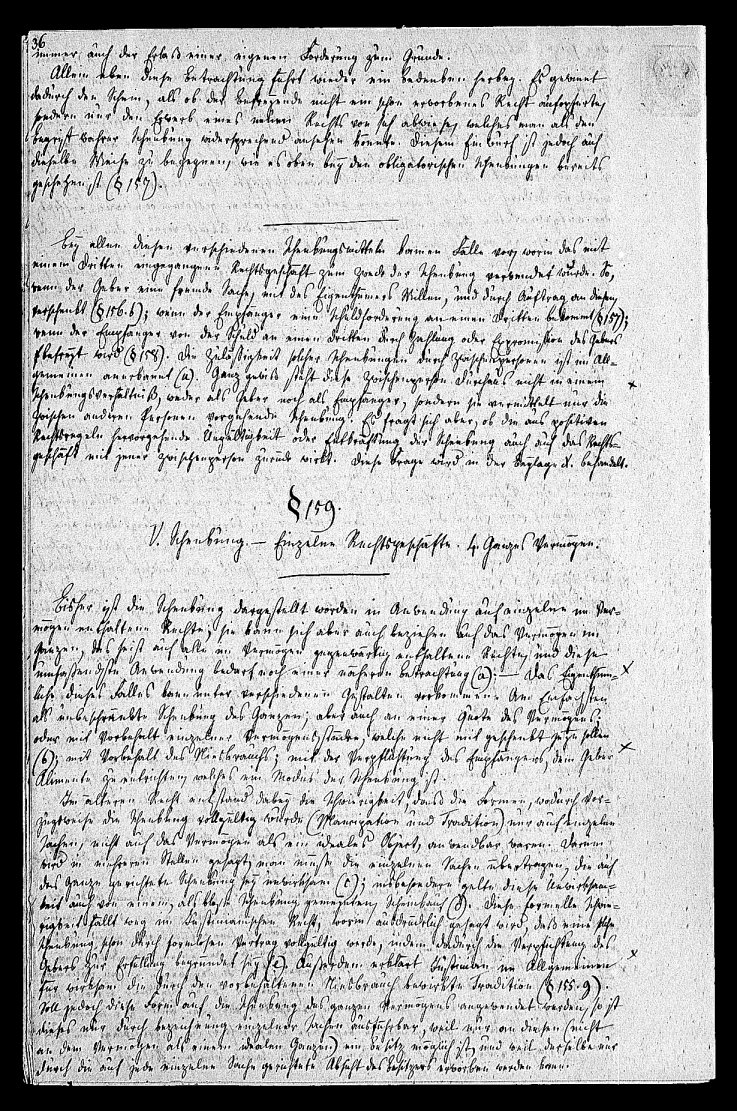 36
immer auch der Erlaß einer eigenen Forderung zum Grunde.
Allein eben diese Betrachtung führt wieder ein Bedenken herbey. Es gewinnt
dadurch den Schein, als ob der Befreyende nicht ein schon erworbenes Recht aufopferte,
sondern nur den Erwerb eines neuen Rechts von sich abwiese, welches man als dem
Begriff wahrer Schenkung widersprechend ansehen könnte. Diesem Einwurf ist jedoch auf
dieselbe Weise zu begegnen, wie es oben bey den obligatorischen Schenkungen bereits
geschehen ist (§ 157).
Bey allen diesen verschiedenen Schenkungsmitteln kamen Fälle vor, worin das mit
einem Dritten eingegangene Rechtsgeschäft zum Zweck der Schenkung verwendet wurde. So,
wenn der Geber eine fremde Sache, mit des Eigenthümers Willen, und durch Auftrag an diesen,
verschenkt (§ 156. b); wenn der Empfänger eine Schuldforderung an einen Dritten bekommt (§ 157);
wenn der Empfänger von der Schuld an einen Dritten durch Zahlung oder Expromission des Gebers
befreyt wird (§ 158). Die Zulässigkeit solcher Schenkungen durch Zwischenpersonen ist im All-
gemeinen anerkannt (a). Ganz gewiß steht diese Zwischenperson durchaus nicht in einem
Schenkungsverhältniß, weder als Geber noch als Empfänger, sondern sie vermittelt nur die
zwischen anderen Personen vorgehende Schenkung. Es fragt sich aber, ob die aus positiven
Rechtsregeln hervorgehende Ungültigkeit oder Entkräftung der Schenkung auch auf das Rechts-
geschäft mit jener Zwischenperson zurück wirkt. Diese Frage wird in der Beylage X. behandelt.
§ 159.
V. Schenkung. — Einzelne Rechtsgeschäfte. 4. Ganzes Vermögen.
Bisher ist die Schenkung dargestellt worden in Anwendung auf einzelne im Ver-
mögen enthaltene Rechte; sie kann sich aber auch beziehen auf das Vermögen im
Ganzen, das heißt auf alle im Vermögen gegenwärtig enthaltene Rechte, und diese
umfassendste Anwendung bedarf noch einer näheren Betrachtung (a). — Das Eigenthüm-
liche dieses Falles kann unter verschiedenen Gestalten vorkommen. Am Einfachsten
als unbeschränkte Schenkung des Ganzen; aber auch an einer Quote des Vermögens;
oder mit Vorbehalt einzelner Vermögensstücke, welche nicht mit geschenkt seyn sollen
(b); mit Vorbehalt des Niesbrauchs; mit der Verpflichtung des Empfängers, dem Geber
Alimente zu entrichten, welches ein Modus der Schenkung ist.
Im älteren Recht entstand dabey die Schwierigkeit, daß die Formen, wodurch vor-
zugsweise die Schenkung vollgültig wurde (Mancipation und Tradition) nur auf einzelne
Sachen, nicht auf das Vermögen als ein ideales Object, anwendbar waren. Darum
wird in mehreren Stellen gesagt, man müsse die einzelnen Sachen übertragen, die auf
das Ganze gerichtete Schenkung sey unwirksam (c); insbesondere gelte diese Unwirksam-
keit auch von einem, als bloße Schenkung gemeynten, Scheinkauf (d). Diese formelle Schwie-
rigkeit fällt weg im Justinianischen Recht, worin ausdrücklich gesagt wird, daß eine solche
Schenkung schon durch formlosen Vertrag vollgültig werde, indem dadurch die Verpflichtung des
Gebers zur Erfüllung begründet sey (e). Außerdem erklärt Justinian im Allgemeinen
für wirksam die durch den vorbehaltenen Niesbrauch bewirkte Tradition (§ 155. g).
Soll jedoch diese Form auf die Schenkung des ganzen Vermögens angewendet werden, so ist
dieses nur durch Bezeichnung einzelner Sachen ausführbar, weil nur an diesen (nicht
an dem Vermögen als einem idealen Ganzen) ein Besitz möglich ist, und weil derselbe nur
durch die auf jede einzelne Sache gerichtete Absicht des Besitzers erworben werden kann.